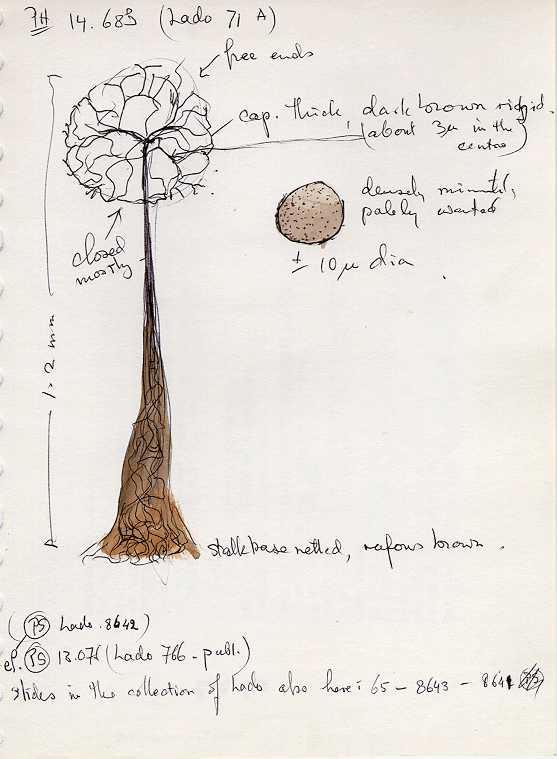 14.689 (Lado 71 A)
free ends
cap. thick, dark brown ridgid.
(about 3µ in the
centre)
densely minute,
palely warted
± 10 µ dia
closed
mostly
1,2 mm
stalkbase netted, rufous brown.
(PS Lado. 8642)
cf. PS 13.076 (Lado 766 - publ.)
slides in the collection of Lado also here: 65 - 8643 -